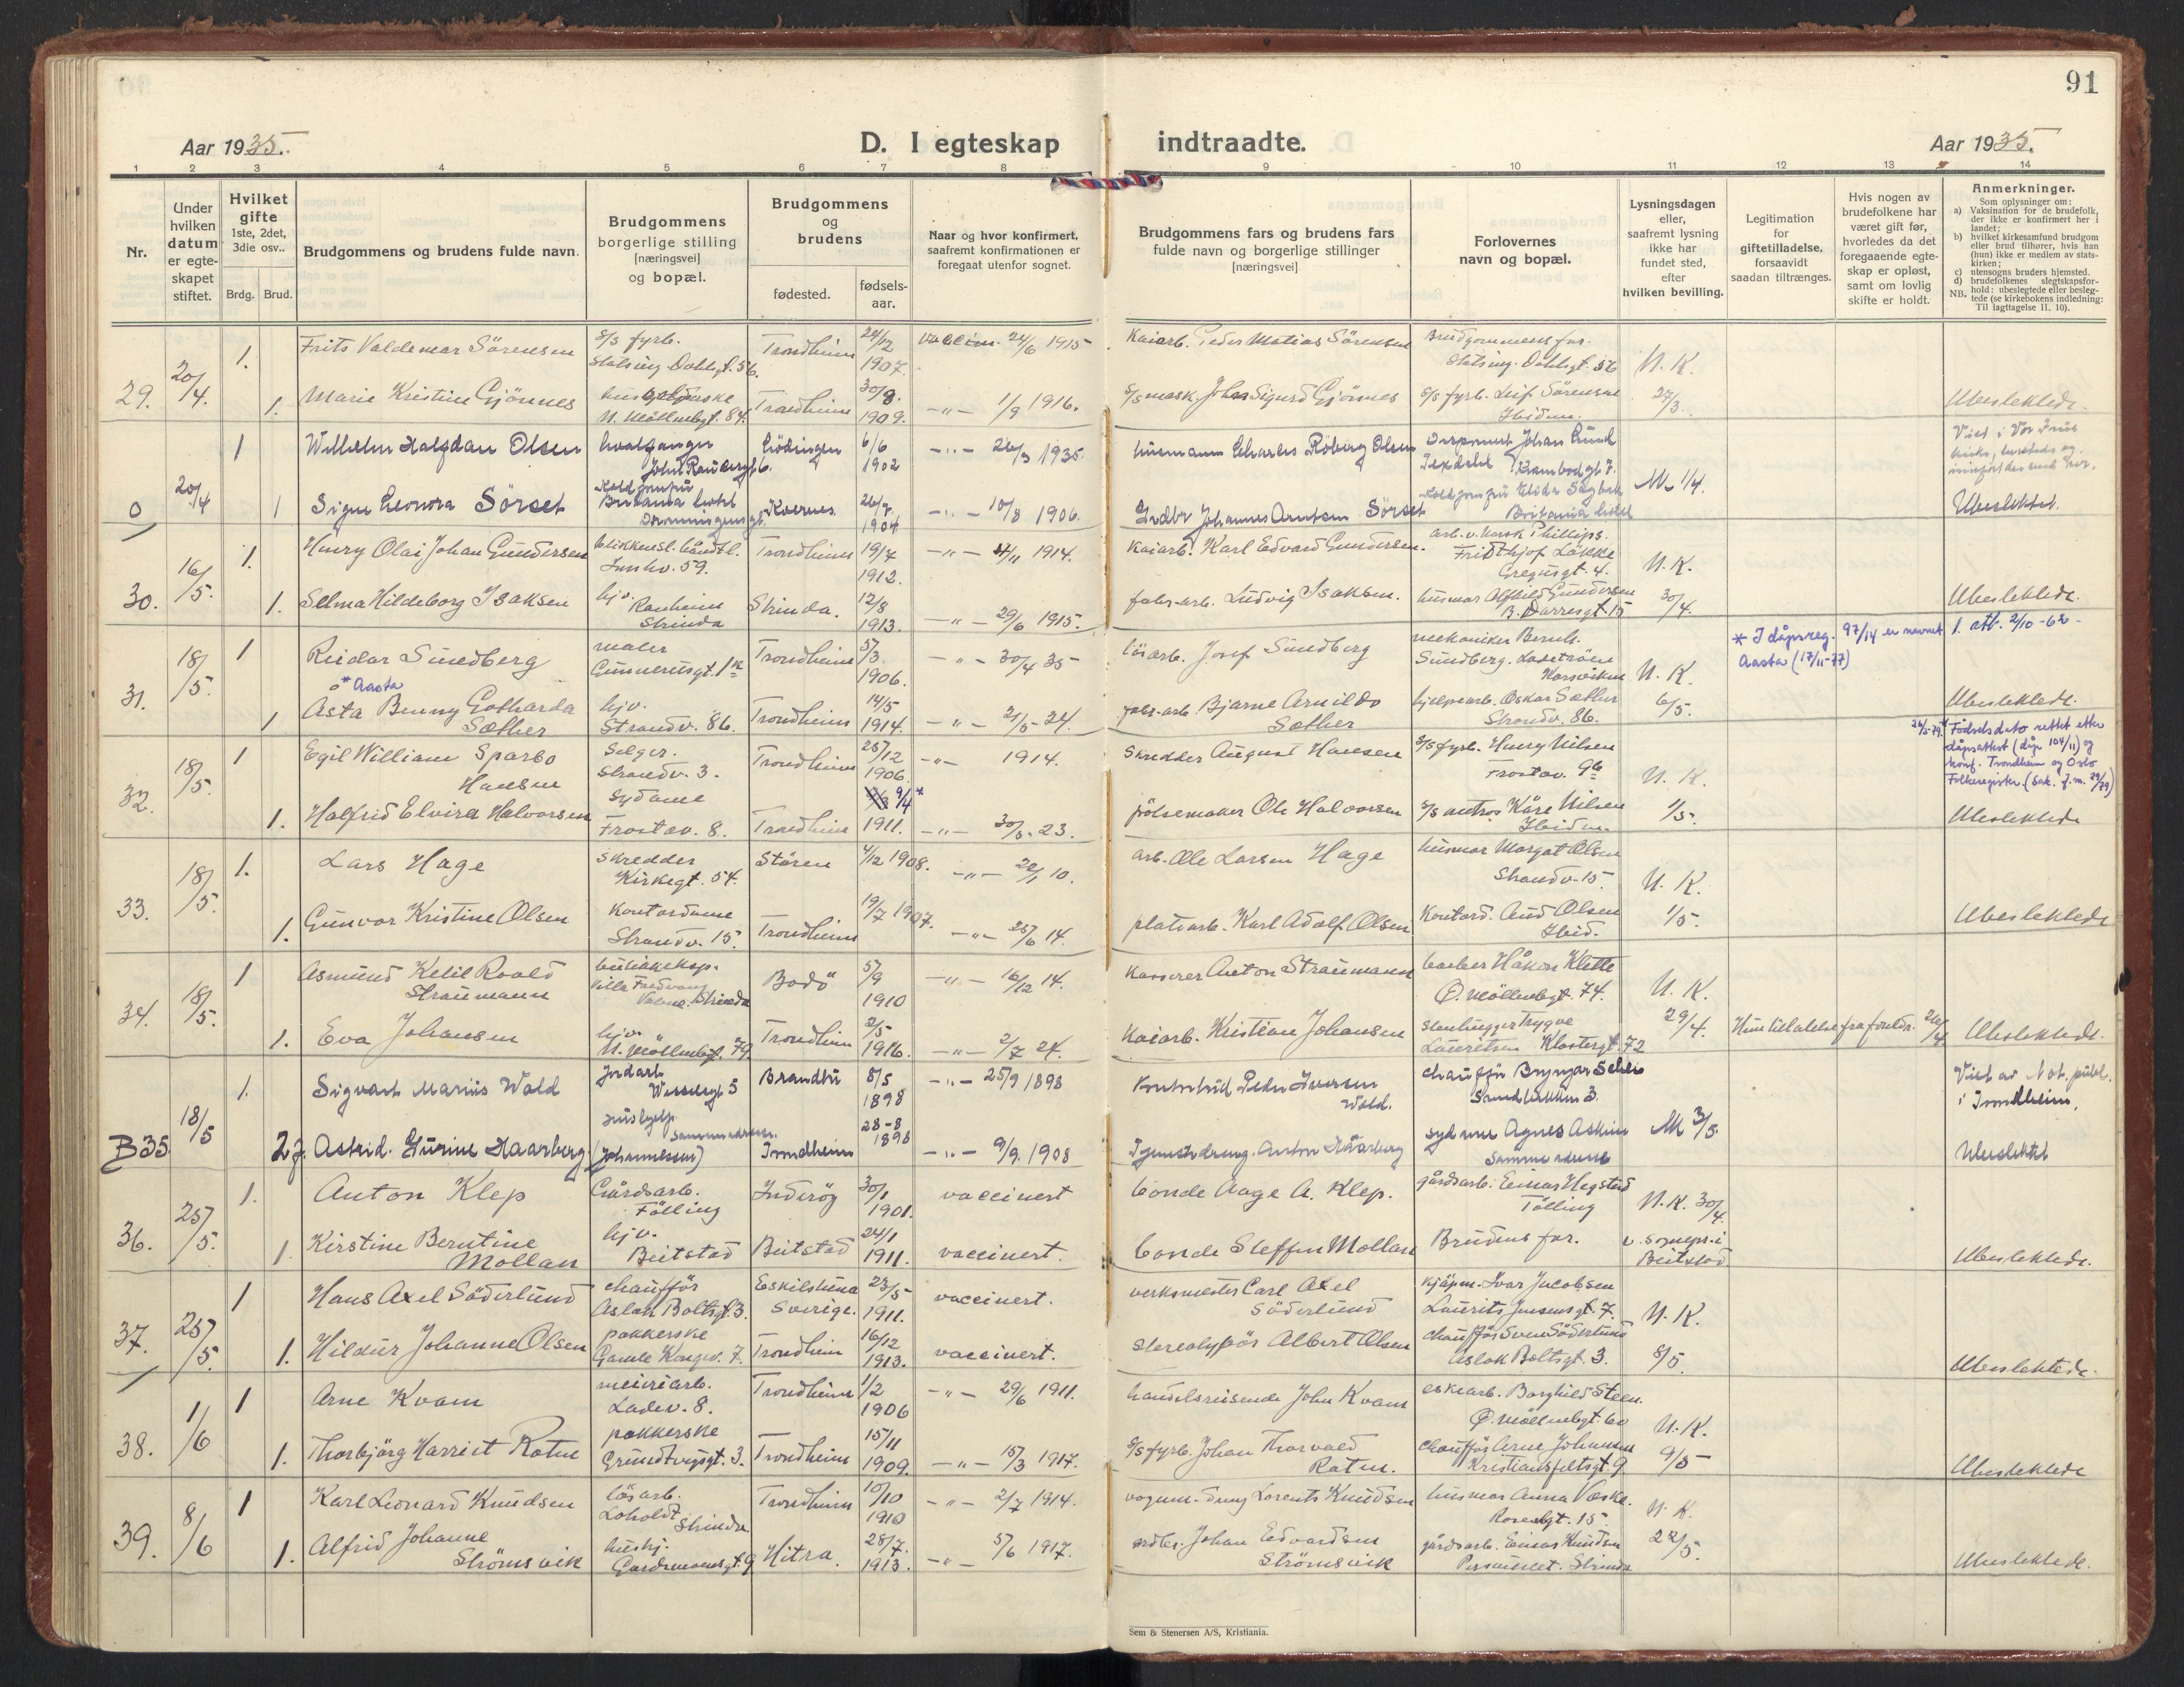 91
Aar 1935.
D. I egteskap indtraadte.
Aar 1935.
1 2 3 4 5 6 7 8 9 10 11 12 13 14
Nr.
Under hvilken datum er egteskapet stiftet.
Hvilket gifte 1ste, 2det, 3die osv..
Brdg. Brud.
Brudgommens og brudens fulde navn.
Brudgommens borgerlige stilling [næringsvei] og bopæl.
Brudgommens og brudens
fødested.
fødselsaar.
Naar og hvor konfirmert, saafremt konfirmationen er foregaat utenfor sognet.
Brudgommens fars og brudens fars fulde navn og borgerlige stillinger [næringsvei]
Forlovernes navn og bopæl.
Lysningsdagen eller, saafremt lysning ikke har fundet sted, efter hvilken bevilling.
Legitimation for giftetilladelse, forsaavidt saadan tiltrænges.
Hvis nogen av brudefolkene har været gift før, hvorledes da det foregaaende egteskap er opløst, samt om lovlig skifte er holdt.
Anmerkninger.
Som oplysninger om:
a) Vaksination for de brudefolk, der ikke er konfirmert her i landet;
b) hvilket kirkesamfund brudgom eller brud tilhører, hvis han (hun) ikke er medlem av statskirken;
c) utensogns bruders hjemsted.
d) brudefolkenes slegtskapsforhold: ubeslegtede eller beslegtede (se kirkebokens indledning: Til Iagttagelse II. 10).
NB.
29. 20/4. 1. Frits Valdemar Sörensen s/s fyrb. Statsing. Dahlsgt. 56. Trondheim 24/12 1907. vaccin. 24/6 1915 Kaiarb. Peder Matias Sörensen Brudgommens far. Statsing. Dahlsgt. 56 U. K.
1. Marie Kristine Gjönnes U. Möllenbgt. 84. Trondheim 30/8. 1909. -"- 1/9 1916. s/s mask. Johan Sigurd Gjönnes s/s fyrb. Leif Sörensen Ibidem. 27/3. Ubeslektede.
0 20/4 1 Wilhelm Halfdan Olsen hvalfanger Lödingen 6/6 1902 -"- 26/3 1935 Charles Roberg Olsen Johan Lund
1 Signe Leonora Sörset Britania hotel Dronningensgt. Kvernes 26/7 1904 -"- 10/8 1906. Johannes Arntsen Sörset Britania hotel M 1/4. Ubeslektet.
30. 16/5. 1. Henry Olai Johan Gundersen blikkensl. Innhv. 59. Trondheim 19/7 1912. -"- 1914. Kaiarb. Karl Edvard Gundersen. arb. v. Norsk Phillips. Fridthjof Lökke Gregusgt. 4. U. K.
1. Selma Hildeborg Isaksen hjv. Ranheim Strinda Strinda. 12/8 1913. -"- 29/6 1915. fabr-arb. Ludvig Isaksen. husmor Alfhild Gundersen 30/4. Ubeslektede.
31. 18/5. 1 Reidar Sundberg maler Gunnerusgt. 1 Trondheim 5/3. 1906. -"- 30/4 35 lösarb. Josef Sundberg mekaniker Bernh. Sundberg. U. K. * I dåpsreg. 97/14 er navnet Aasta (17/11-77) 1. att. 2/10-62-
* Aasta
1 Åsta Benny Gotharda Sæther hjv. Strandv. 86. Trondheim 14/5 1914. -"- 21/5-24. fabr-arb. Bjarne Arnildo Sæther hjelpearb. Oskar Sæther Strandv. 86. 6/5. Ubeslektede.
32. 18/5. 1 Egil William Sparbo Hansen Selger. Strandv. 3. Trondheim 25/12 1906. -"- 1914. Skredder August Hansen s/s fyrb. Henry Nilsen Frostav. 9b U. K. * Födselsdato rettet etter dåpsattest (dåp 104/11) og konf. Trondheim og Oslo Folkeregister (sak. J.m. 29/79)
1. Halfrid Elvira Halvorsen Sydame Frostav. 8. Trondheim 9/4 * 1911. -"- 30/5-23. pölsemaker Ole Halvorsen Kåre Nilsen Ibidem 1/5. Ubeslektede
33. 18/5. 1. Lars Hage Skredder Kirkegt. 54. Stören 4/12 1908. -"- 22/1 10. arb. Ole Larsen Hage husmor Margot Olsen Strandv. 15. U. K.
1. Gunvor Kristine Olsen Kontordame Strandv. 15. Trondheim 19/7 1907. -"- 25/6 14. platearb. Karl Adolf Olsen Kontord. Aud Olsen Ibid. 1/5. Ubeslektede
34. 18/5. 1 Asmund Ketil Roald Straumann butikkeksp. Strinda Bodö 5/9 1910 -"- 16/12 14. Kasserer Anton Straumann barber Håkon Klette Ö. Möllenbgt. 74. U. K.
1. Eva Johansen hjv. U. Möllenbgt. 79 Trondheim 2/5 1916. -"- 2/7 24. Kaiarb. Kristian Johansen Stenhugger Trygve Lauritsen Klostergt. 72 29/4. Hun tillatelse fra foreldr. 26/4 Ubeslektede.
B35 18/5 1. Sigvart Marius Wold Indarb Wesselsgt 5 Brandbu 8/5 1898 -"- 25/9 1898 Peder Iversen Wold. chauffør Brynjar M 3/5 Viet av Not. publ. i Trondheim,
2 Astrid Gurine Maarberg (Johannessen) Trondheim 28-8 1898 -"- 9/9. 1908 Anton Maarberg Sydame Agnes Askim Samme adresse Ubeslektet
36. 25/5. 1. Anton Klep Gårdsarb. Fölling Inderöy 30/1 1901. vaccinert bonde Aage A. Klep. gårdsarb. Einar Hegstad Tölling U. K. 30/4.
1. Kirstine Berntine Mollan hjv. Beitstad Beitstad 24/1 1911. vaccinert. bonde Steffen Mollan Brudens far. v. sognepr. i Beitstad Ubeslektede.
37. 25/5. 1 Hans Axel Söderlund chaufför Aslak Boltsgt. 3. Eskilstuna Sverige. 23/5 1911. vaccinert. verksmester Carl Axel Söderlund kjöpm. Ivar Jacobsen Laurits Jensensgt. 7. U. K.
1. Hildur Johanne Olsen pakkerske Gamle Kongev. 7. Trondheim 16/12 1913. vaccinert. stereotypör Albert Olsen chaufför Sven Söderlund Aslak Boltsgt. 3. 8/5. Ubeslektede.
38. 1/6 1 Arne Kvam meieriarb. Ladev. 8. Trondheim 1/2 1906 -"- 29/6 1911. handelsreisende John Kvam eskearb. Borghild Steen. Ö. Möllenbgt. 60 U. K.
1. Thorbjörg Harriet Rotm pakkerske Grundtvigsgt. 3. Trondheim 15/11 1909. -"- 15/3 1917. s/s fyrb. Johan Thorvald chaufför Arne Johansen Kristiansfeltsgt. 9. 9/5 Ubeslektede
39. 8/6 1 Karl Leonard Knudsen lösarb. Loholdt Strinda Trondheim 10/10 1910 -"- 2/7 1914. Lorents Knudsen husmor Anna Væske. Rosenbgt. 15. U. K.
1. Alfrid Johanne Strömsvik hushj. Gardemoensgt. 9 Hitra. 28/7. 1913. -"- 5/6 1917. Johan Edvardsen Strömsvik gårdsarb. Einar Knudsen Strinda 22/5. Ubeslektede.
Sem & Stenersen A/S, Kristiania.